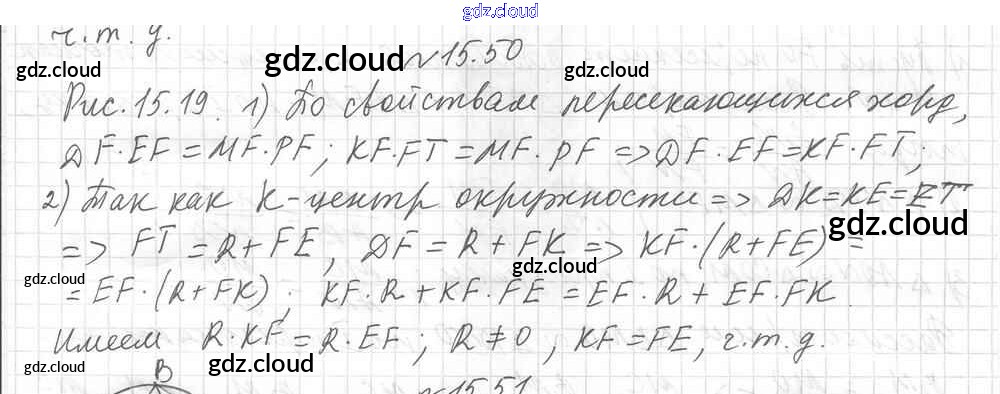 gdz.cloud
ч.т.д.
№15.50
gdz.cloud gdz.cloud gdz.cloud
Рис. 15.19. 1) По свойствам пересекающихся хорд,
DF·EF = MF·PF; KF·FT = MF·PF => DF·EF = KF·FT;
2) Так как K-центр окружности => DK=KE=ET
gdz.cloud
=> FT = R+FE, DF = R + FK => KF·(R+FE) =
gdz.cloud gdz.cloud
= EF·(R+FK); KF·R+KF·FE = EF·R + EF·FK
Имеем R·KF = R·EF; R≠0, KF=FE, ч.т.д.
gdz.cloud gdz.cloud gdz.cloud
B
№15.51